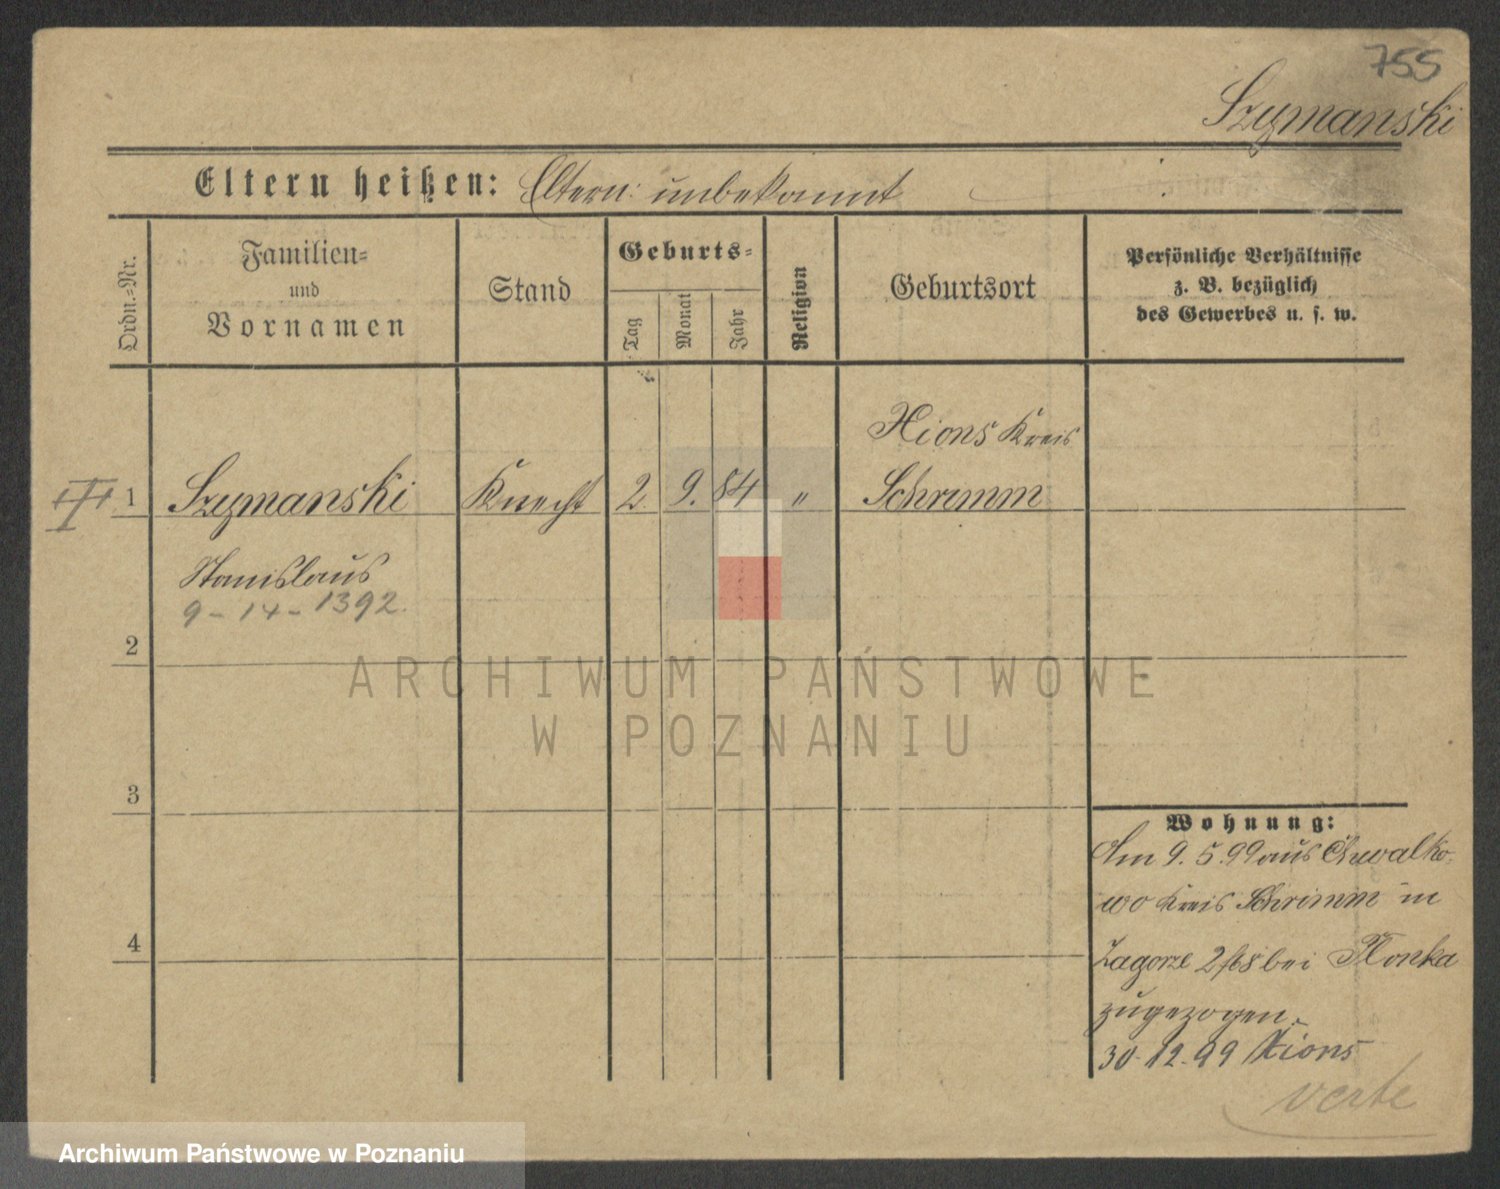 755
Szymanski
Eltern heißen: Eltern: unbekannt
Ordn.-Nr.
Familien-
und
Vornamen
Stand
Geburts-
Tag
Monat
Jahr
Religion
Geburtsort
Persönliche Verhältnisse
z. B. bezüglich
des Gewerbes u. s. w.
Xions Kreis
1 Szymanski Knecht 2. 9. 84 " Schrimm
Stanislaus
9-14-1392.
2
3
4
Wohnung:
Am 9.5.99 aus Chwalko-
wo Kreis Schrimm in
Zagorze bei Plonka
zugezogen.
30.12.99 Xions
verte
ARCHIWUM PAŃSTWOWE
W POZNANIU
Archiwum Państwowe w Poznaniu